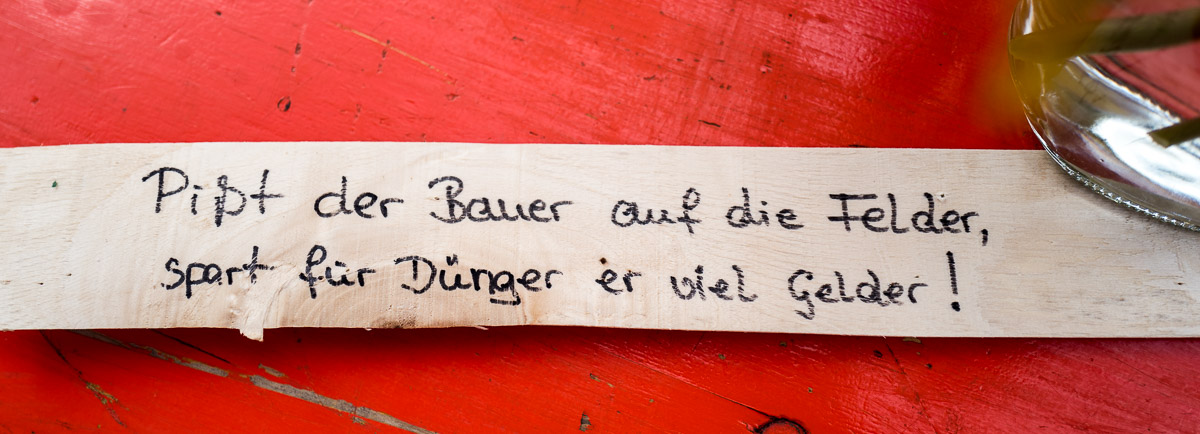 Pißt der Bauer auf die Felder,
spart für Dünger er viel Gelder!